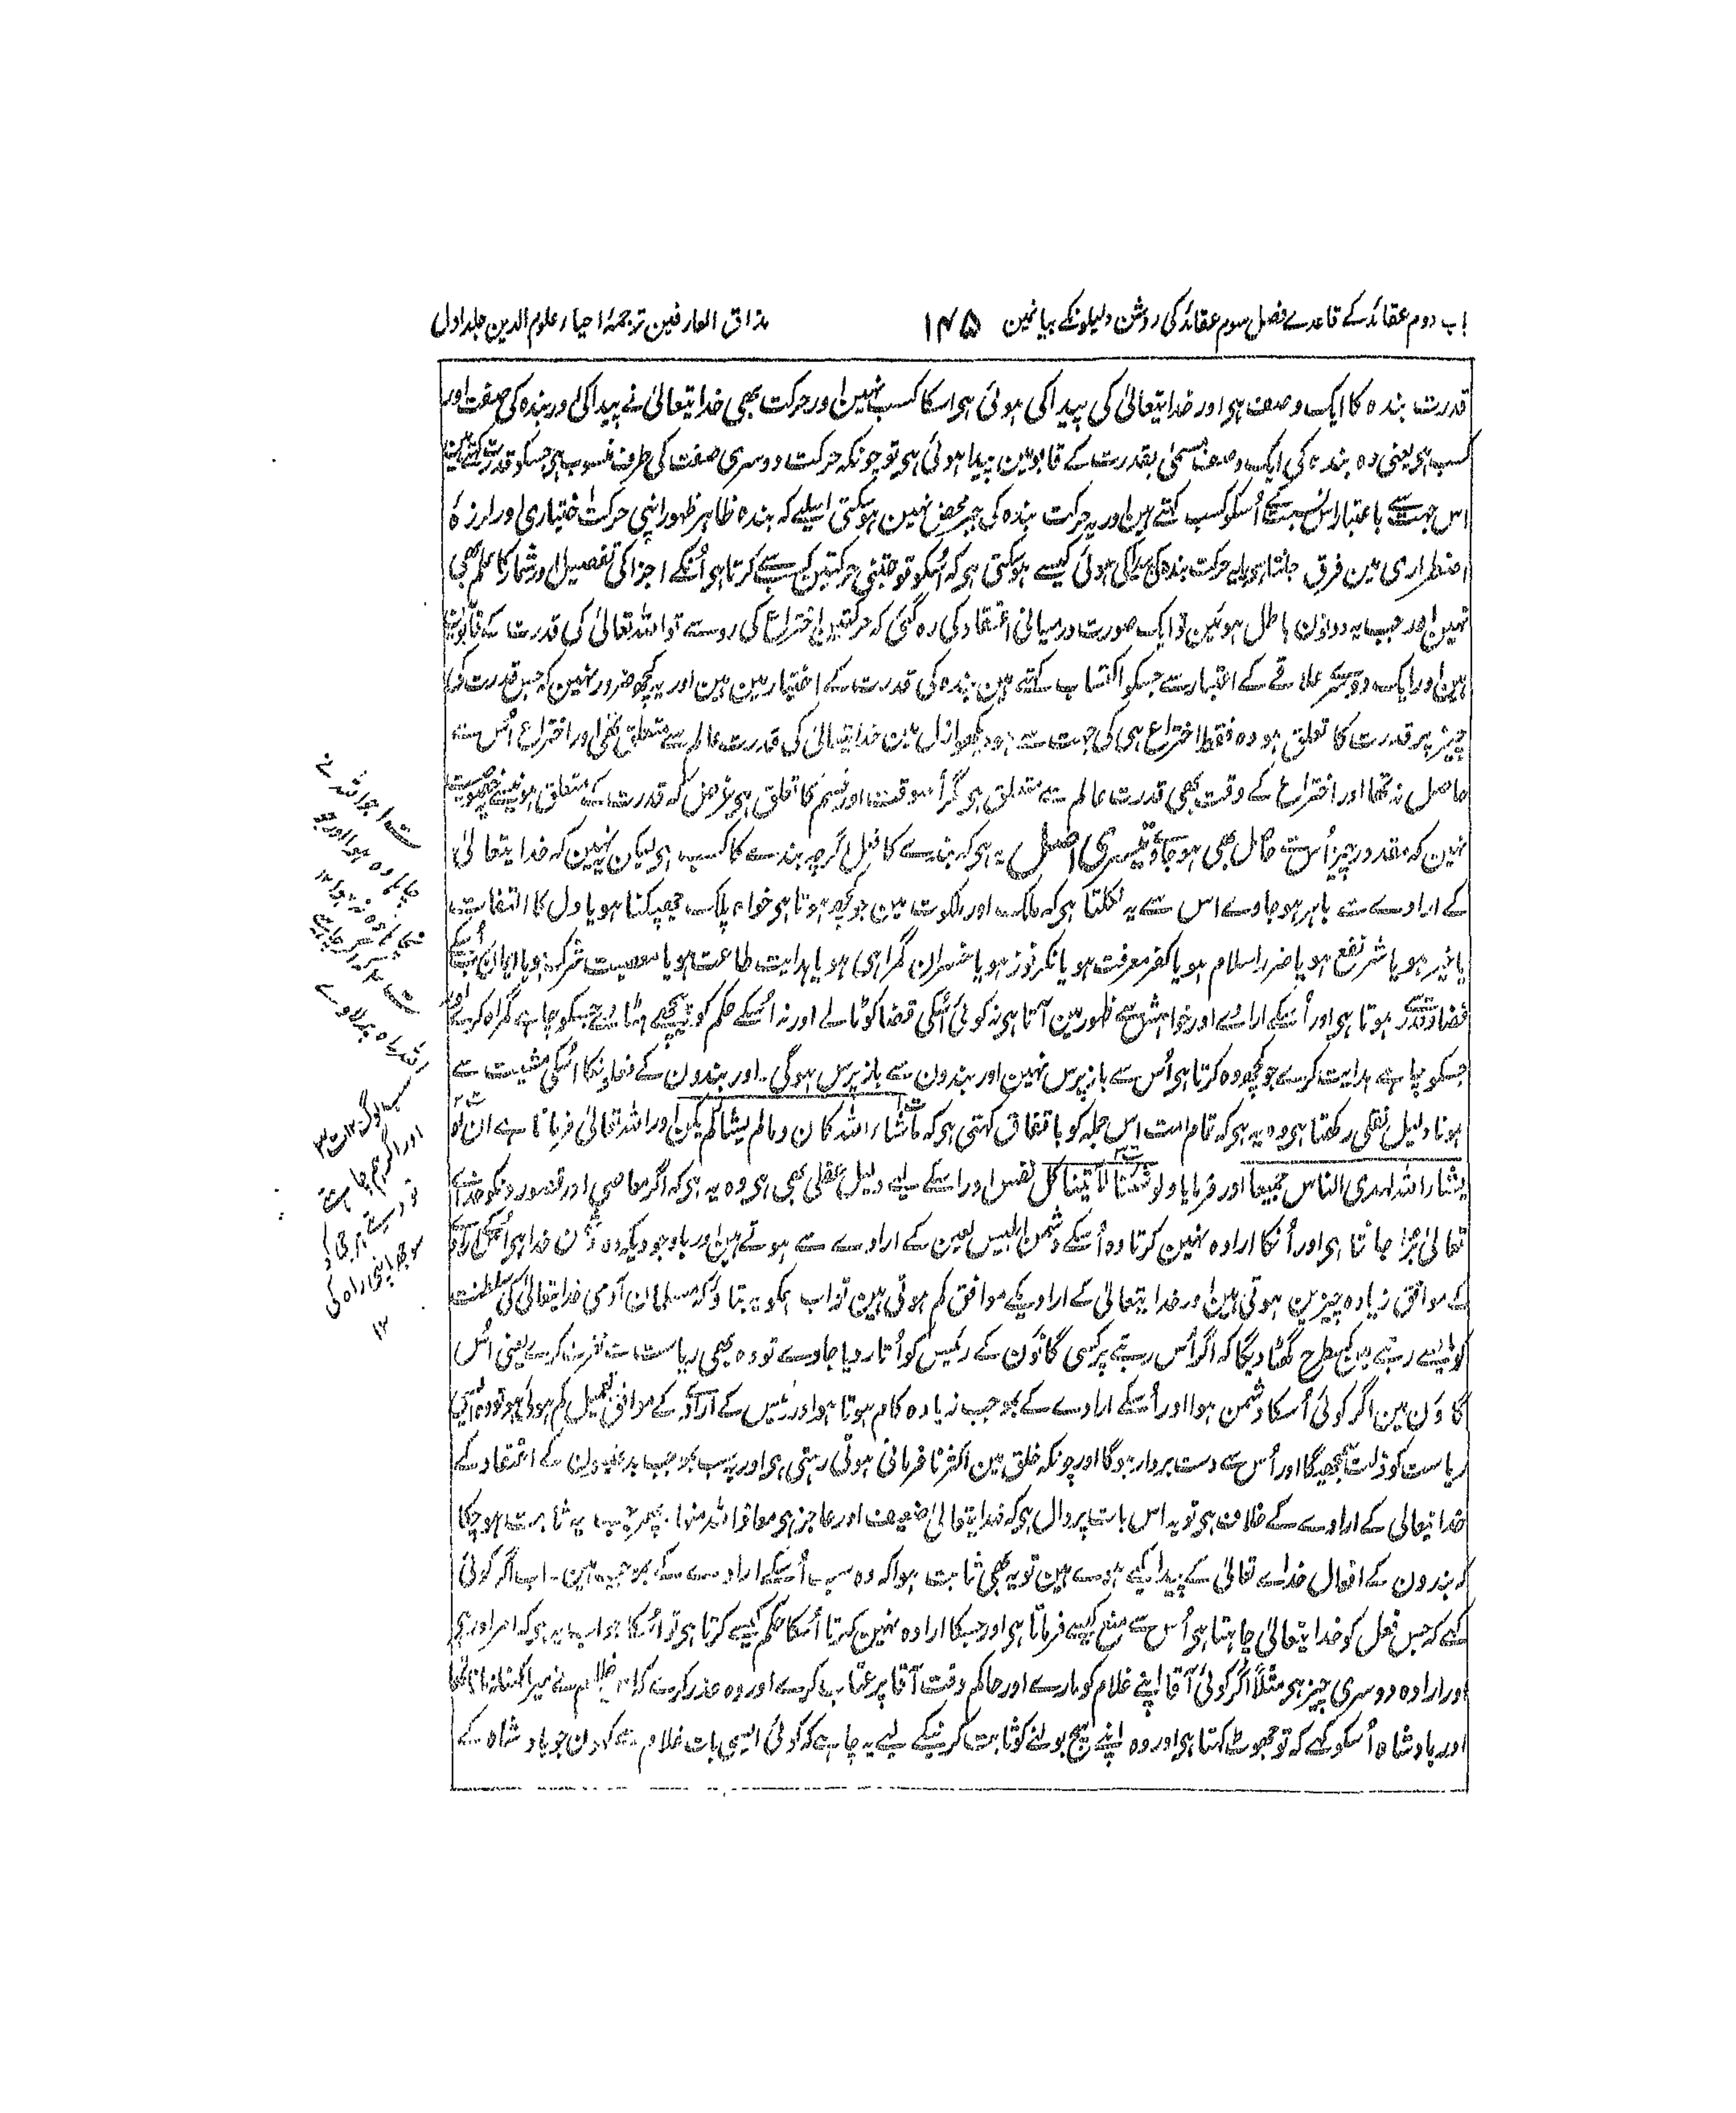 باب دوم عقائد کے قاعدے فصل سوم عقائد کی روشن دلیلونکے بیانمین ۱۴۵ مذاق العارفین ترجمۂ احیاء علوم الدین جلد اول
قدرت بندہ کا ایک وصف ہی اور خدایتعالیٰ کی پیدا کی ہوئی ہی اسکا کسب نہین اور حرکت بھی خدایتعالیٰ نے پیدا کی اور بندہ کی صفت اور
کسب ہی یعنی وہ بندہ کی ایک وصف مسمیٰ بقدرت کے قابو مین پیدا ہوئی ہی تو چونکہ حرکت دوسری صفت کی طرف منسوب ہی جسکو قدرت کہتے ہین
اس جہت سے باعتبار اس نسبت کے اُسکو کسب کہتے ہین اور یہ حرکت بندہ کی جبر محض نہین ہوسکتی اسلیے کہ بندہ ظاہر ظہور اپنی حرکت اختیاری اور لرزہ
اضطراری مین فرق جانتا ہی یا یہ حرکت بندہ کی پیدا کی ہوئی کیسے ہوسکتی ہی کہ اُسکو تو جتنی حرکتین کسب سے کرتا ہی اُنکے اجزا کی تفصیل اور شمار کا علم بھی
نہین اور جب یہ دونون باطل ہوئین تو ایک صورت درمیانی اعتقاد کی رہ گئی کہ حرکتین اختراع کی روسے تو اللہ تعالیٰ کی قدرت کے قابو مین
ہین اور ایک دوسرے علاقے کے اعتبار سے جسکو اکتساب کہتے ہین بندہ کی قدرت کے اختیار مین ہین اور یہ کچھ ضرور نہین کہ جس قدرت کو
چیز پر قدرت کا تعلق ہو وہ فقط اختراع ہی کی جہت سے ہو دیکھو ازل مین خدایتعالیٰ کی قدرت عالم سے متعلق تھی اور اختراع اُس سے
حاصل نہ تھا اور اختراع کے وقت بھی قدرت عالم سے متعلق ہی مگر اُسوقت اور قسم کا تعلق ہی غرض کہ قدرت کے متعلق ہونیسے خصوصیت
نہین کہ مقدور چیز اُس سے حاصل بھی ہوجاوے تیسری اصل یہ ہی کہ بندے کا فعل اگرچہ بندے کا کسب ہی لیکن یہ نہین کہ خدایتعالیٰ
کے ارادے سے باہر ہوجاوے اس سے یہ نکلتا ہی کہ ملک اور ملکوت مین جو کچھ ہوتا ہی خواہ پلک جھپکنا ہو یا دل کا التفات
یا خیر ہو یا شر نفع ہو یا ضرر اسلام ہو یا کفر معرفت ہو یا نکر فوز ہو یا خسران گمراہی ہو یا ہدایت طاعت ہو یا معصیت شرک ہو یا ایمان سب اُسکے
قضا و قدر سے ہوتا ہی اور اُسکے ارادے اور خواہش سے ظہور مین آتا ہی نہ کوئی اُسکی قضا کو ٹالے اور نہ اُسکے حکم کو پیچھے ہٹاوے جسکو چاہے گمراہ کرے اور
جسکو چاہے ہدایت کرے جو کچھ وہ کرتا ہی اُس سے باز پرس نہین اور بندون سے باز پرس ہوگی۔ اور بندون کے فعلونکا اُسکی مشیت سے
ہونا دلیل نقلی رکھتا ہی وہ یہ ہی کہ تمام امت اس جملہ کو باتفاق کہتی ہی کہ ماشاء اللہ کان وما لم یشا لم یکن اور اللہ تعالیٰ فرماتا ہے ان لو
یشاء اللہ لہدی الناس جمیعا اور فرمایا ولو شئنا لآتینا کل نفس اور اسکے لیے دلیل عقلی بھی ہی وہ یہ ہی کہ اگر معاصی اور قصورونکو خداے
تعالیٰ برا جانتا ہی اور اُنکا ارادہ نہین کرتا وہ اُسکے دشمن ابلیس لعین کے ارادے سے ہوتے ہین اور باوجودیکہ وہ دشمن خدا ہی اُسکی ارادے
کے موافق زیادہ چیزین ہوتی ہین اور خدایتعالیٰ کے ارادیکے موافق کم ہوتی ہین تو اب ہمکو یہ بتاؤ کہ مسلمان آدمی خدایتعالیٰ کی سلطنت
کو ایسے رتبے مین کس طرح گھٹا دیگا کہ اگر اُس رتبے پر کسی گانؤن کے رئیس کو اُتار دیا جاوے تو وہ بھی ریاست سے نفرت کرے یعنی اُس
گاؤن مین اگر کوئی اُسکا دشمن ہوا اور اُسکے ارادے کے بموجب زیادہ کام ہوتا ہو اور رئیس کے ارادے کے موافق تعمیل کم ہوتی ہو تو وہ ایسی
ریاست کو ذلت سمجھیگا اور اُس سے دست بردار ہوگا اور چونکہ خلق مین اکثر نافرمانی ہوتی رہتی ہی اور یہ سب بموجب بدعتیون کے اعتقاد کے
خدایتعالی کے ارادے کے خلاف ہی تو یہ اس بات پر دال ہی کہ خدایتعالیٰ ضعیف اور عاجز ہی معاذ اللہ منہا۔ پھر جب یہ ثابت ہوچکا
کہ بندون کے افعال خداے تعالیٰ کے پیدا کیے ہوے ہین تو یہ بھی ثابت ہوا کہ وہ سب اُسکے ارادے کے بموجب ہین۔ اب اگر کوئی
کہے کہ جس فعل کو خدایتعالیٰ چاہتا ہی اُس سے منع کیسے فرماتا ہی اور جسکا ارادہ نہین کرتا اُسکا حکم کیسے کرتا ہی تو اُسکا جواب یہ ہی کہ امر اور ہی
اور ارادہ دوسری چیز ہی مثلاً اگر کوئی آقا اپنے غلام کو مارے اور حاکم وقت آقا پر عتاب کرے اور وہ عذر کرے کہ اس غلام نے میرا کہنا نہ مانا تھا
اور بادشاہ اُسکو کہے کہ تو جھوٹ کہتا ہی اور وہ اپنے سچ بولنے کو ثابت کرنیکے لیے یہ چاہے کہ کوئی ایسی بات غلام سے کہون جو بادشاہ کے
جو اللہ نے
چاہا وہ ہوا اور جو
نہ چاہا وہ نہ ہوا ۱۲
اگر چاہے
اللہ راہ پر لاوے
سب لوگ ۱۲
اور اگر ہم چاہتے
تو دیتے ہر جی کو
سوجھ اپنی راہ کی
۱۲